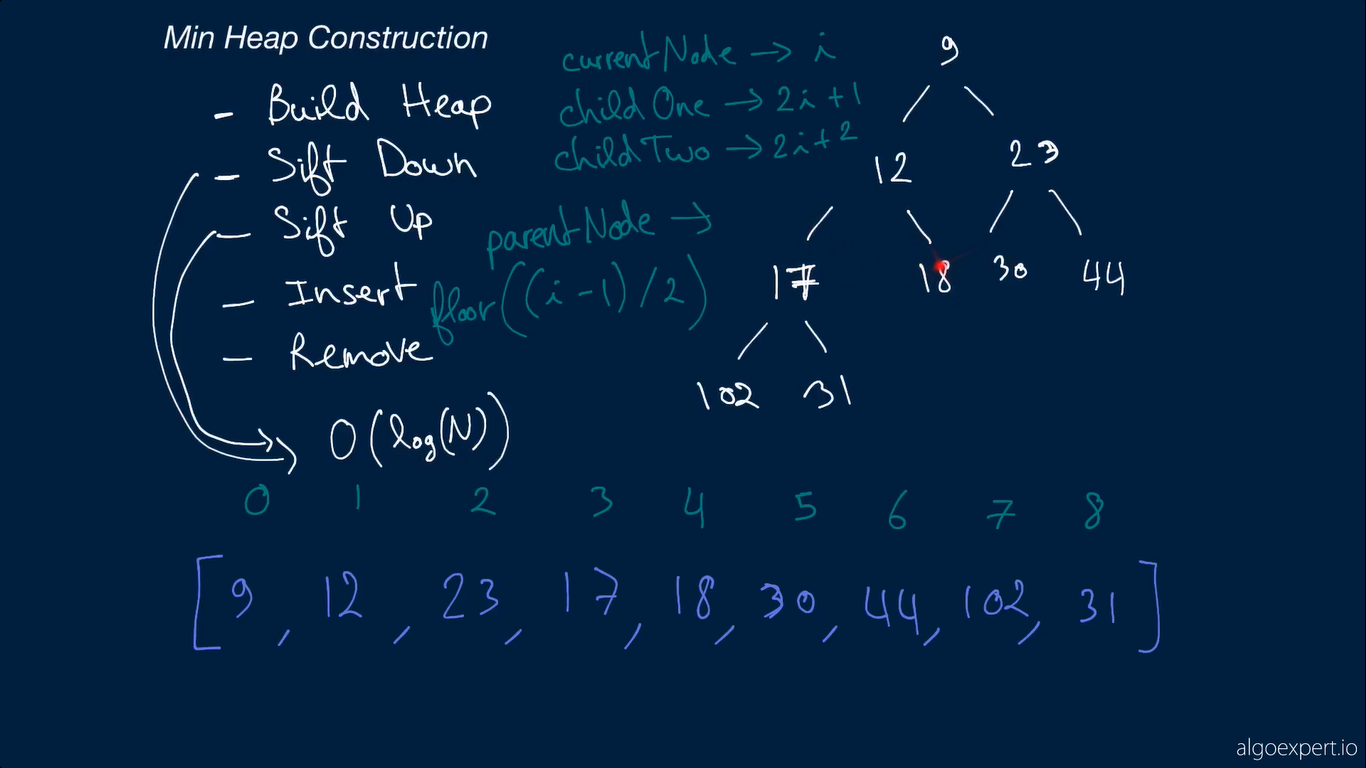 Min Heap Construction
- Build Heap
- Sift Down
- Sift Up
- Insert
- Remove
O(log(N))
currentNode → i
childOne → 2i+1
childTwo → 2i+2
parentNode →
floor((i-1)/2)
9
12 23
17 18 30 44
102 31
0 1 2 3 4 5 6 7 8
[9, 12, 23, 17, 18, 30, 44, 102, 31]
algoexpert.io